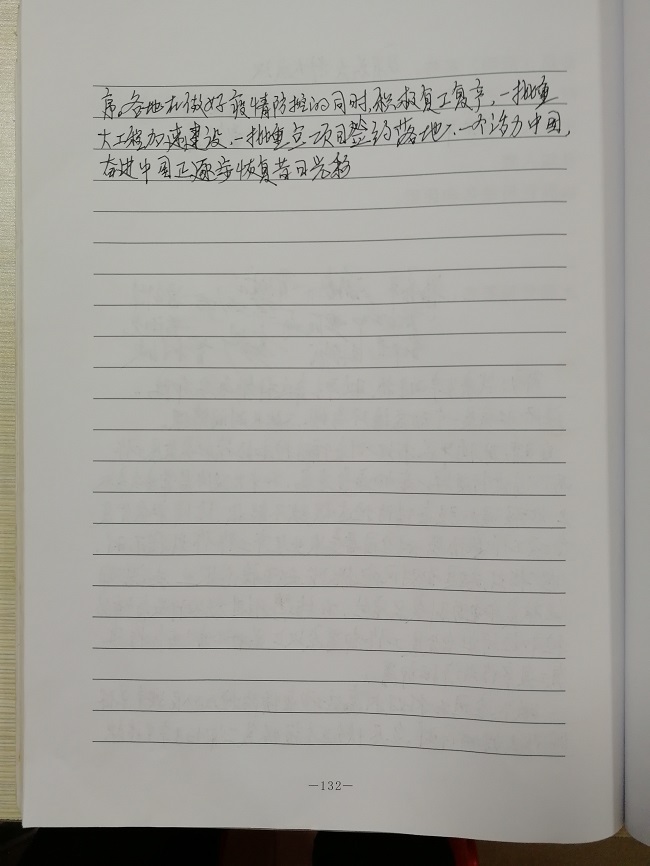 序。各地在做好疫情防控的同时,积极复工复产,一批重
大工程加速建设,一批重点项目签约落地,一个活力中国,
奋进中国正逐步恢复昔日光彩
—132—